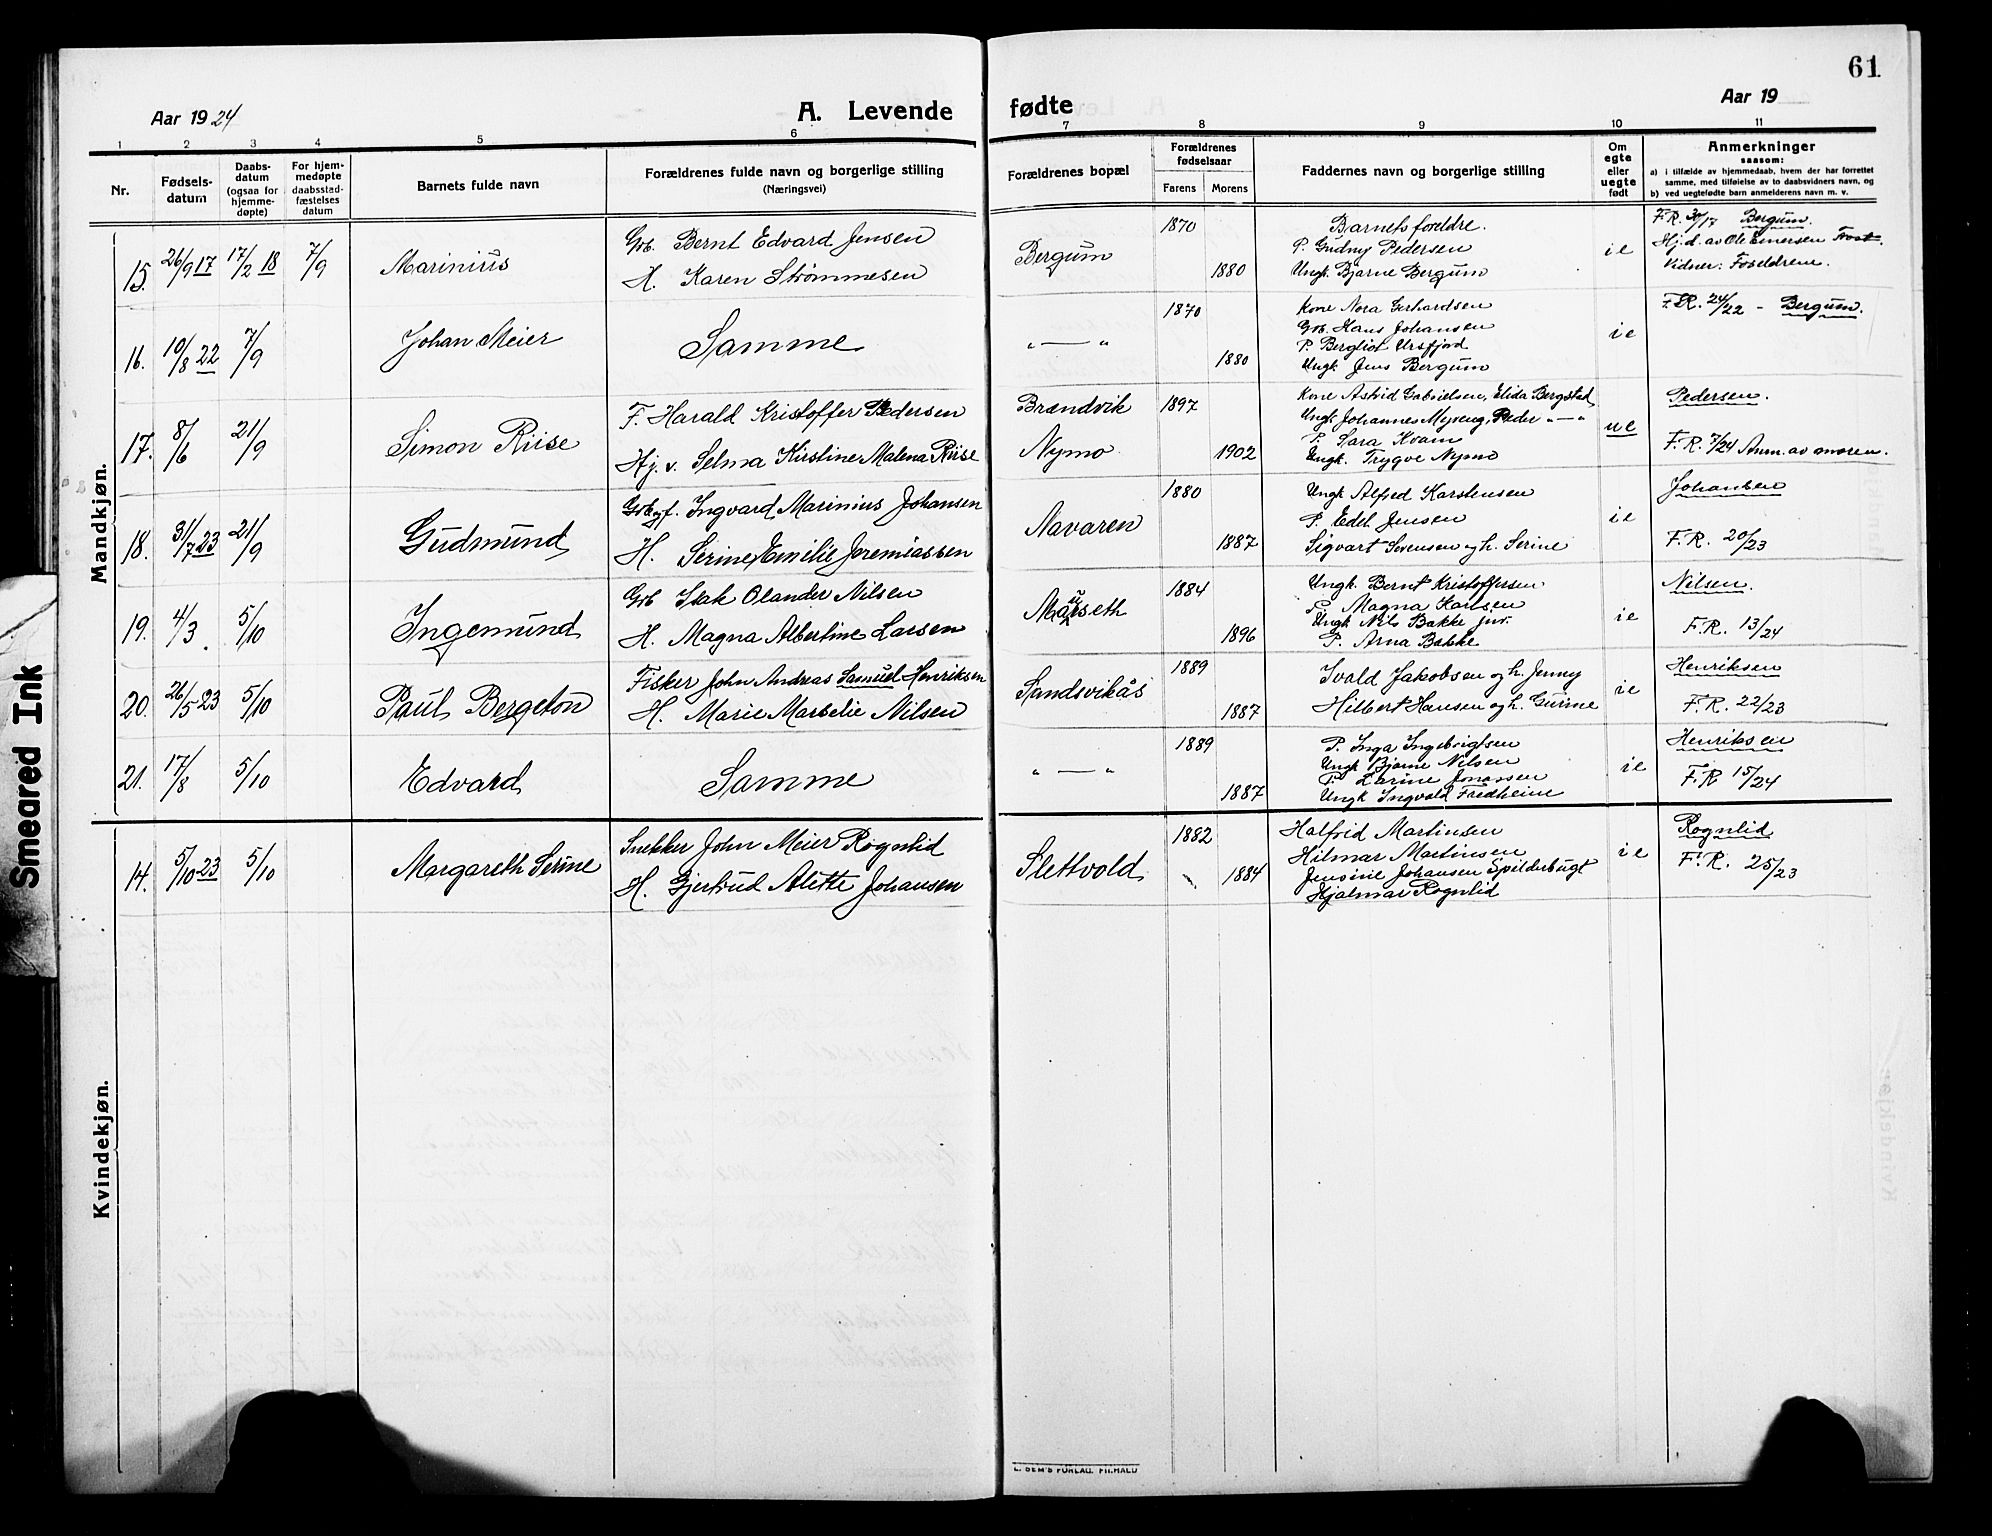 61
Aar 1924
A. Levende fødte
Aar 19
1 2 3 4 5 6 7 8 9 10 11
Nr.
Fødsels-
datum
Daabs-
datum
(ogsaa for
hjemme-
døpte)
For hjem-
medøpte
daabsstad-
fæstelses
datum
Barnets fulde navn
Forældrenes fulde navn og borgerlige stilling
(Næringsvei)
Forældrenes bopæl
Forældrenes
fødselsaar
Farens Morens
Faddernes navn og borgerlige stilling
Om
egte
eller
uegte
født
Anmerkninger
saasom:
a) i tilfælde av hjemmedaab, hvem der har forrettet
samme, med tilføielse av to daabsvidners navn, og
b) ved uegtefødte barn anmelderens navn m. v.
Mandkjøn.
15. 26/9 17 17/2 18 7/9 Marinius
Grb. Bernt Edvard Jensen
H. Karen Strømmesen
Bergum 1870 1880
Barnets foreldre.
P. Gudny Pedersen
Ungk. Bjarne Bergum
ie
F.R. 30/17 Bergum.
Hj.d. av Ole Einersen
Vidner: Foreldrene.
16. 10/8 22 7/9 Johan Meier
Samme
" — " 1870 1880
Kone Nora Gerhardsen
Grb. Hans Johansen
P. Bergliot Ursfjord
Ungk. Jens Bergum
ie
F.R. 24/22 - Bergum.
17. 8/6 21/9 Simon Riise
F. Harald Kristoffer Pedersen
Hj. v. Selma Kirstine Malena Riise
Brændvik
Nymo 1897 1902
Kone Astrid Gabrielsen, Elida Bergstad
Ungk. Johannes Myreng, Peder " — "
P. Sara Kvam
Ungk. Trygve Nymo
ue
Pedersen.
F.R. 7/24 Anm. av moren.
18. 31/7 23 21/9 Gudmund
Grbgf. Ingvard Marinius Johansen
H. Serine Emilie Jeremiassen
Navaren 1880 1887
Ungk Alfred Karstensen
P. Edel Jensen
Sigvart Sørensen og h. Serine
ie
Johansen
F.R. 20/23
19. 4/3. 5/10 Ingemund
Grb Isak Olander Nilsen
H. Magna Albertine Larsen
1884 1896
Ungk. Bernt Kristoffersen
P. Magna Karlsen
Ungk Nils Bakke jur.
P. Arna Bakke
ie
Nilsen.
F.R. 13/24
20. 26/5 23 5/10 Paul Bergeton
Fisker John Andreas Samuel Henriksen
H. Marie Marselie Nilsen
Sandsvikås 1889 1887
Ivald Jakobsen og h. Jenny
Hilbert Hansen og h. Gurine
ie
Henriksen
F.R. 22/23
21. 17/8 5/10 Edvard
Samme
" — " 1889 1887
P. Inga Ingebrigtsen
Ungk Bjarne Nilsen
P. Larine Jonassen
Ungk Ingvald Fredheim
ie
Henriksen
F.R 15/24
Kvindekjøn.
14. 5/10 23 5/10 Margareth Serine
Snekker John Meier Rognlid
H. Gjertrud Alette Johansen
Slettvold 1882 1884
Halfrid Martinsen
Hilmar Martinsen
Jensine Johansen Spilderbugt
Hjalmar Rognlid
ie
Rognlid
F.R. 25/23
E. SEM'S FORLAG. FR.HALD
Smeared Ink